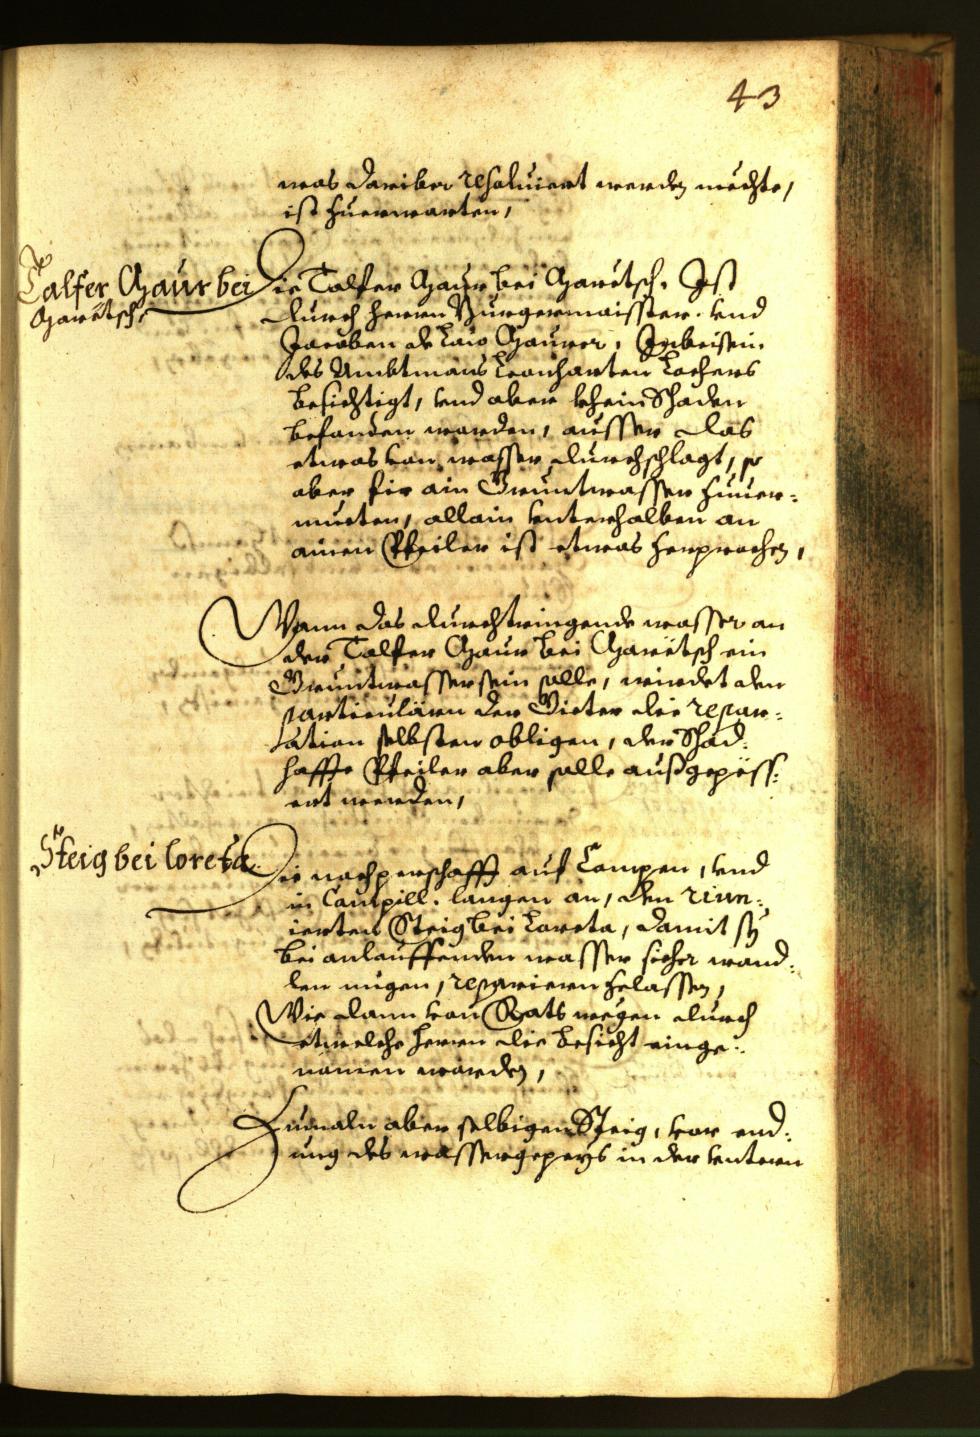 43
was dariber resoluiert werden mechte,
ist zuerwarten,
Talfer Maur bei
Maretsch.
Die Talfer Maur bei Maretsch. Ist
durch herrn Burgermaister. vnd
Jacoben de Laio Maurer, In beisein
des Ambtmans Leonharten Lochers
besichtigt, vnd aber khein Schaden
befunden worden, ausser das
etwas von wasser durchschlagt, so
aber fir ain Gruntwasser zuuer-
muten, allain vnterhalben an
ainen Pfeiler ist etwas zerprochen,
Wann das durchtringende wasser an
der Talfer Maur bei Maretsch ein
Gruntwasser sein solle, wirdet den
particularn der Gieter die repar-
ation selbsten obligen, der Schad-
haffte Pfeiler aber solle außgepess-
ert werden,
Steig bei Loreta.
Die nachperschafft auf Campen, vnd
in Campill. langen an, den ruin-
ierten Steig bei Loreta, damit sy
bei anlauffenden wasser sicher wand-
len migen, reparieren zelassen,
Wie dann von Rats wegen durch
etwelche herrn die besicht einge-
nomen worden,
Zumaln aber selbigen Steig, vor end-
ung des wassergepeys in der vntern